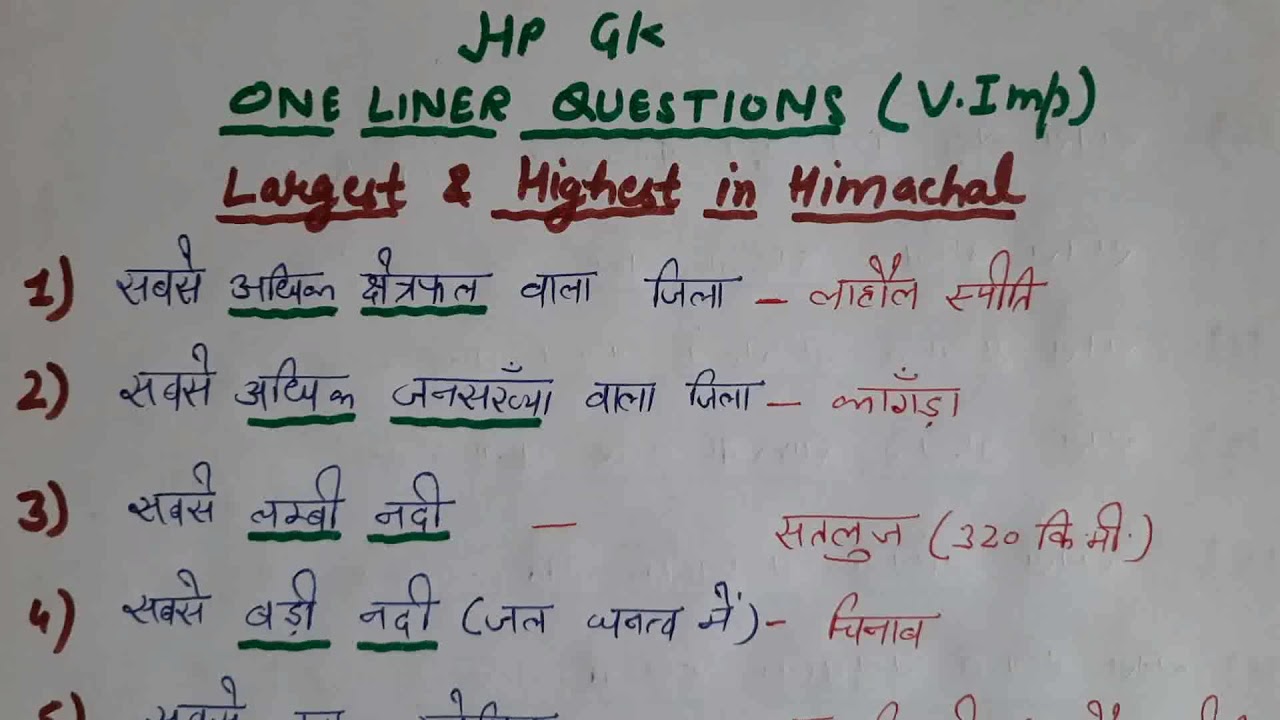 HP GK
ONE LINER QUESTIONS (V.Imp)
Largest & Highest in Himachal
1) सबसे अधिक क्षेत्रफल वाला जिला - लाहौल स्पीति
2) सबसे अधिक जनसख्याँ वाला जिला - काँगड़ा
3) सबसे लम्बी नदी - सतलुज (320 कि.मी.)
4) सबसे बड़ी नदी (जल घनत्व में) - चिनाब
5) सबसे